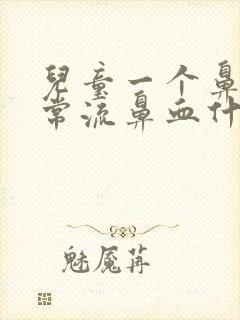 兒童一个鼻
常流鼻血什
魅魇苒